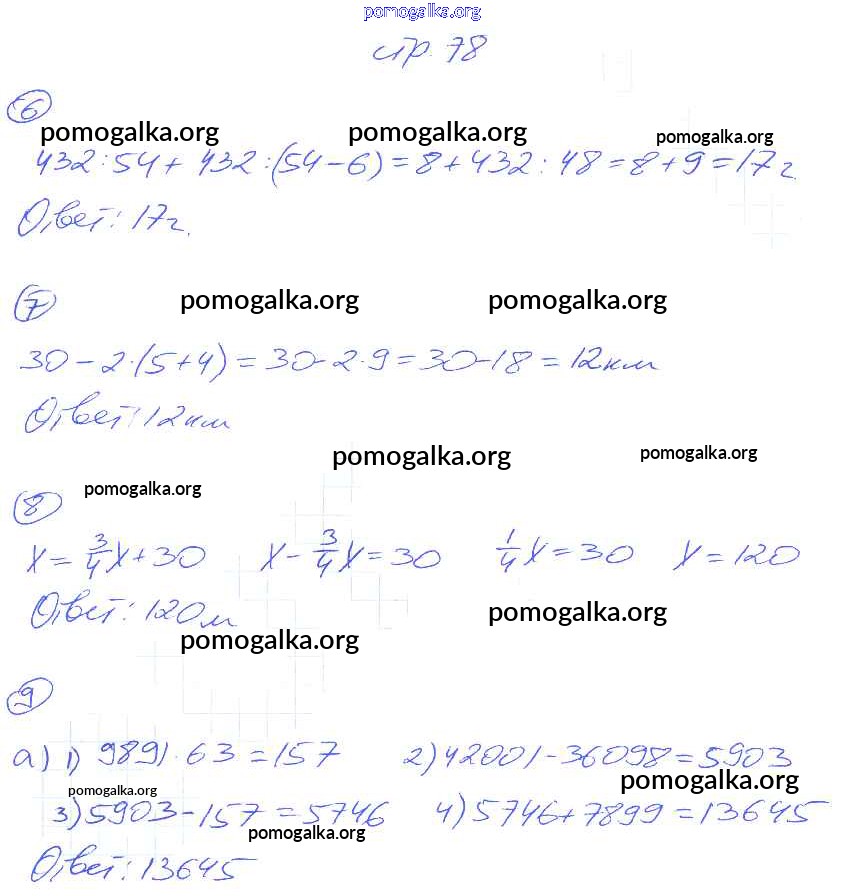 pomogalka.org
стр. 78
6
pomogalka.org pomogalka.org pomogalka.org
432:54+432:(54-6)=8+432:48=8+9=17г.
Ответ: 17г.
7
pomogalka.org pomogalka.org
30-2·(5+4)=30-2·9=30-18=12км
Ответ: 12км
pomogalka.org pomogalka.org
8 pomogalka.org
x=3/4x+30 x-3/4x=30 1/4x=30 x=120
Ответ: 120м
pomogalka.org
pomogalka.org
9
а) 1) 9891:63=157 2) 42001-36098=5903
pomogalka.org pomogalka.org
3) 5903-157=5746 4) 5746+7899=13645
pomogalka.org
Ответ: 13645